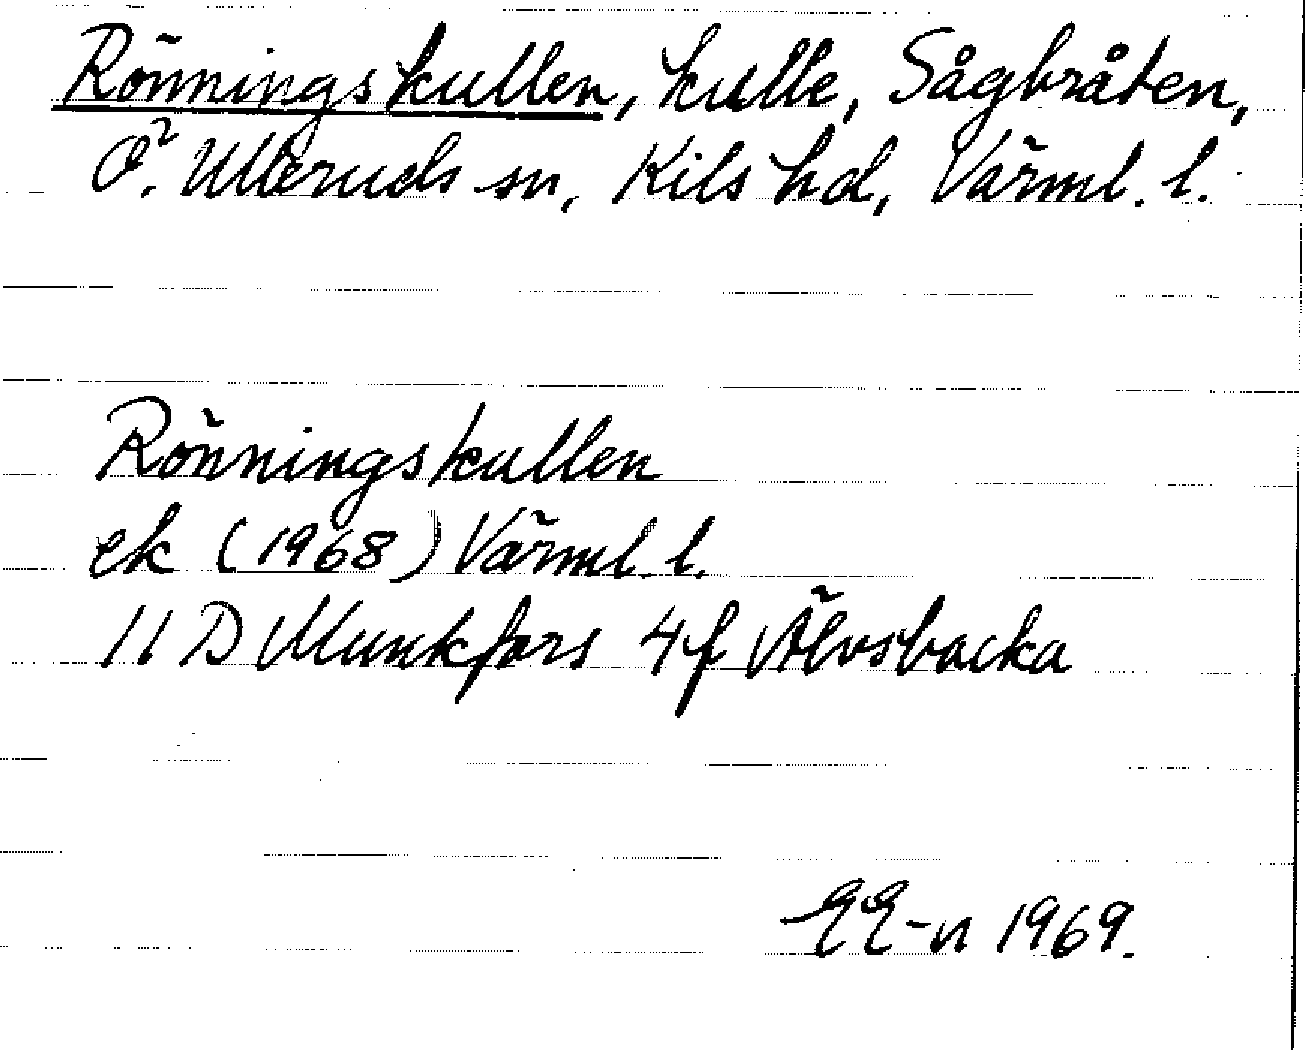 Rönningskullen, kulle, Sågbråten,
Ö. Ulleruds sn, Kils hd, Värml. l.
Rönningskullen
ek (1968) Värml. l.
11 D Munkfors 4f Älvsbacka
EE-n 1969.